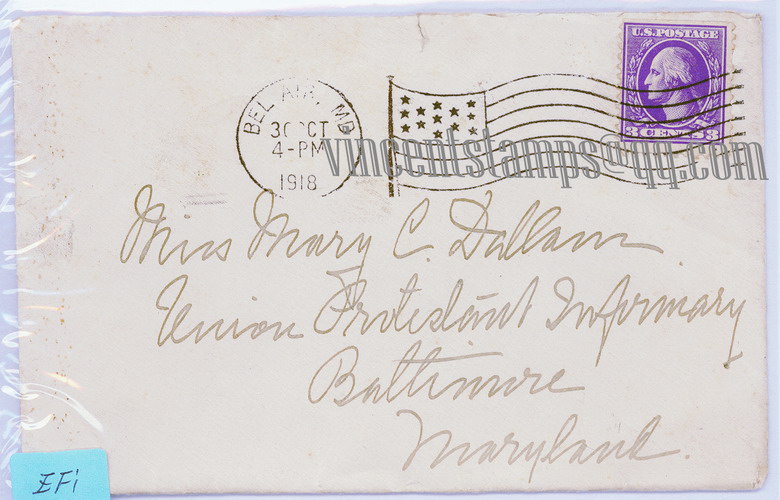 U.S. POSTAGE
3 CENTS 3
BEL AIR, MD
30 OCT
4-PM
1918
vincentstamps@qq.com
Miss Mary C. Dallam
Union Protestant Infirmary
Baltimore
Maryland.
EFi